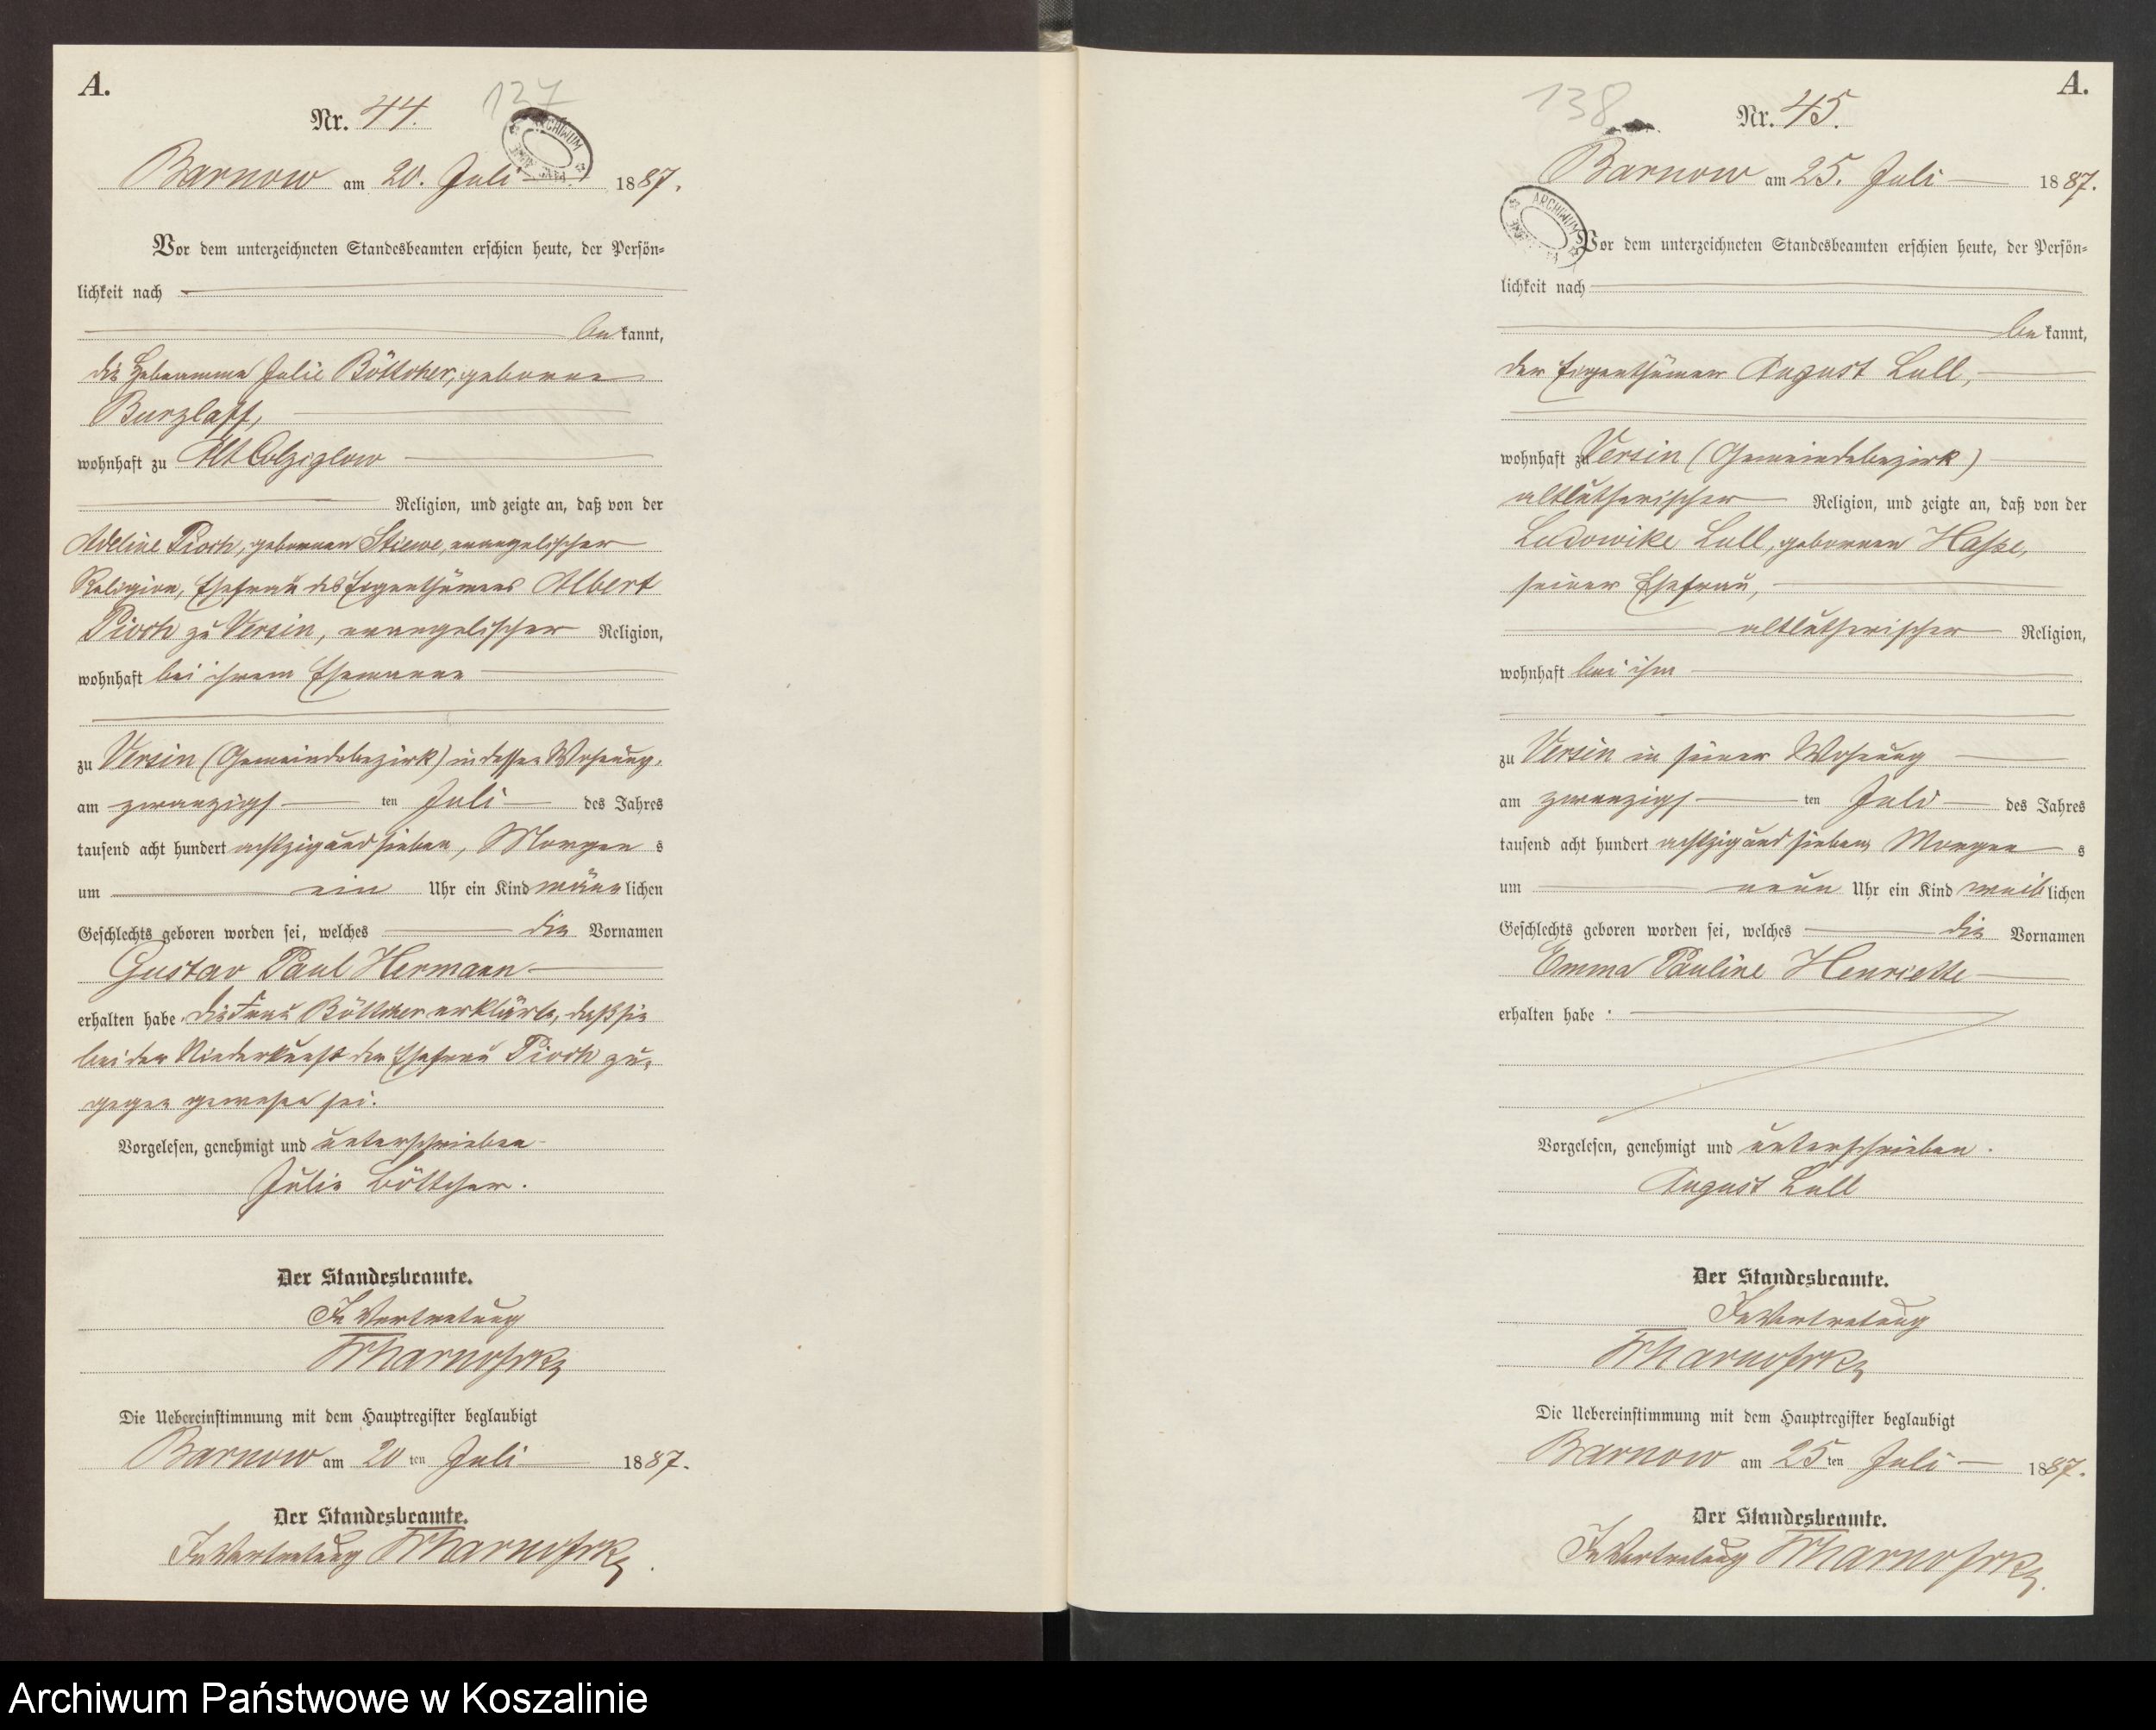 A.
Nr. 44.
127
ARCHIWUM
Barnow am 20. Juli 1887.
Vor dem unterzeichneten Standesbeamten erschien heute, der Persön=
lichkeit nach
bekannt,
die Hebeamme Julie Böttcher, geborene
Burzlaff,
wohnhaft zu Alt Colziglow
Religion, und zeigte an, daß von der
Adeline Pioch, geborenen Stiewe, evangelischer
Religion, Ehefrau des Eigenthümers Albert
Pioch zu Versin, evangelischer Religion,
wohnhaft bei ihrem Ehemanne
zu Versin (Gemeindebezirk) in dessen Wohnung,
am zwanzigsten Juli des Jahres
tausend acht hundert achtzig und sieben, Morgens
um ein Uhr ein Kind männlichen
Geschlechts geboren worden sei, welches die Vornamen
Gustav Paul Hermann
erhalten habe. Die Frau Böttcher erklärte, daß sie
bei der Niederkunft der Ehefrau Pioch zu=
gegen gewesen sei.
Vorgelesen, genehmigt und unterschrieben
Julie Böttcher.
Der Standesbeamte.
In Vertretung
Die Uebereinstimmung mit dem Hauptregister beglaubigt
Barnow am 20ten Juli 1887.
Der Standesbeamte.
In Vertretung
A.
138
Nr. 45.
Barnow am 25. Juli 1887.
ARCHIWUM
Vor dem unterzeichneten Standesbeamten erschien heute, der Persön=
lichkeit nach
bekannt,
der Eigenthümer August Lull,
wohnhaft zu Versin (Gemeindebezirk)
altlutherischer Religion, und zeigte an, daß von der
Ludowike Lull, geborenen Haße,
seiner Ehefrau,
altlutherischer Religion,
wohnhaft bei ihm
zu Versin in seiner Wohnung
am zwanzigsten Juli des Jahres
tausend acht hundert achtzig und sieben Morgens
um neun Uhr ein Kind weiblichen
Geschlechts geboren worden sei, welches die Vornamen
Emma Pauline Henriette
erhalten habe.
Vorgelesen, genehmigt und unterschrieben.
August Lull
Der Standesbeamte.
In Vertretung
Die Uebereinstimmung mit dem Hauptregister beglaubigt
Barnow am 25ten Juli 1887.
Der Standesbeamte.
In Vertretung
Archiwum Państwowe w Koszalinie